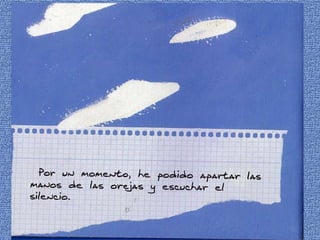 Por un momento, he podido apartar las
manos de las orejas y escuchar el
silencio.